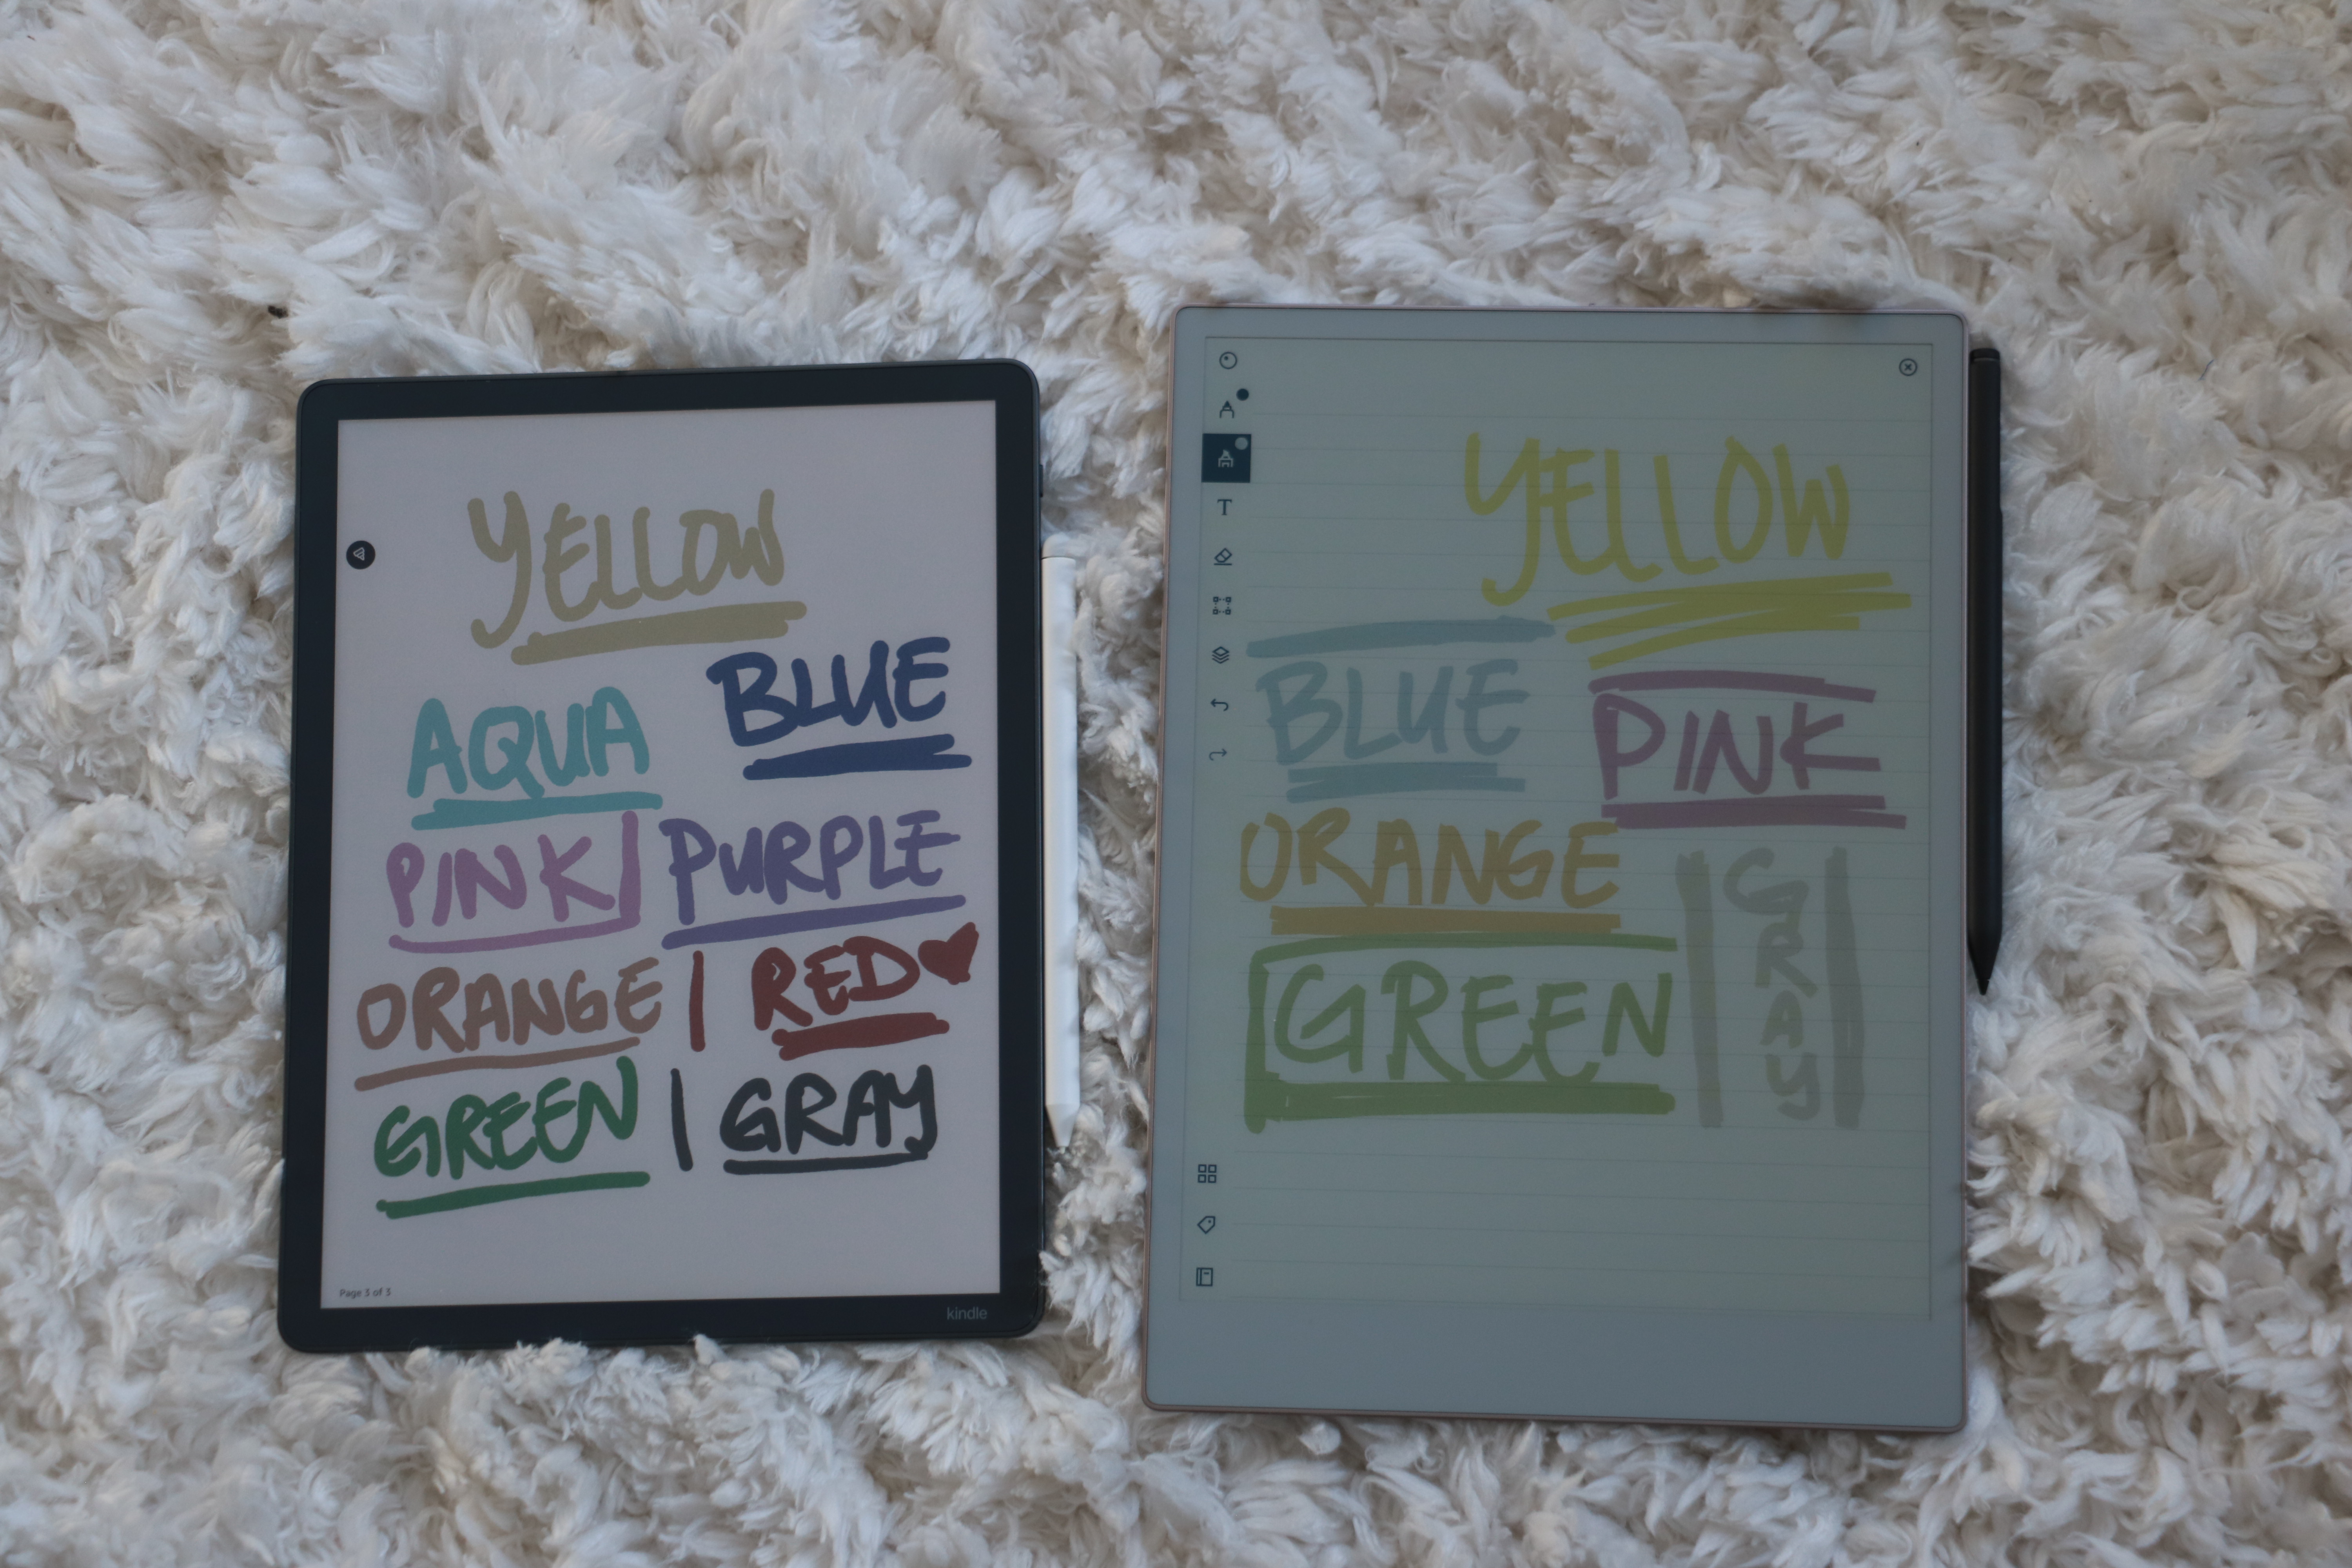 YELLOW
BLUE
AQUA
PINK PURPLE
ORANGE RED
GREEN GRAY
Page 3 of 3
kindle
T
YELLOW
BLUE PINK
ORANGE
GREEN
GRAY